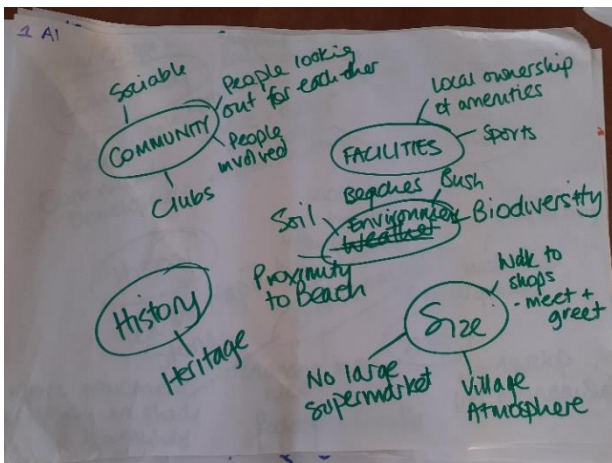 1 A1
Sociable
People looking
out for each other
COMMUNITY
People
involved
Clubs
Local ownership
of amenities
Sports
FACILITIES
Beaches
Bush
Soil
Environment
Weather
Biodiversity
Proximity
to Beach
History
Heritage
Walk to
shops
- meet +
greet
Size
No large
supermarket
Village
Atmosphere